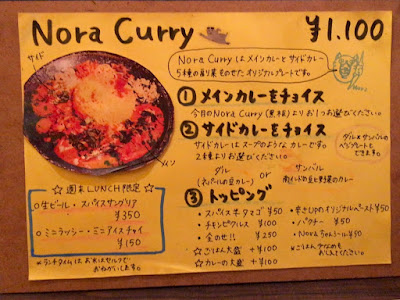 Nora Curry
¥1.100
サイド
メイン
Nora Curryはメインカレーとサイドカレー
5種の副菜をのせたオリジナルプレートです。
① メインカレーをチョイス
今月のNora Curry(黒板)よりお1つお選びください。
② サイドカレーをチョイス
サイドカレーはスープのようなカレーです。
2種よりお選びください。
ダル
(ネパールの豆カレー)
or
サンバル
南インドの豆と野菜のカレー
ダル×サンバルの
ベジプレートも
できます。
③ トッピング
・スパイス半タマゴ ¥50
・チキンピクルス ¥100
・全のせ!! ¥250
☆ごはん大盛 +¥100
☆カレーの大盛 +¥100
・辛さUPのオリジナルペースト ¥50
・パクチー ¥50
・Noraちゃんミール ¥50
☆ 週末LUNCH限定 ☆
○生ビール・スパイスサングリア
¥350
○ミニラッシー・ミニアイスチャイ
¥150
*ランチタイムはお水はセルフで
おねがいします。